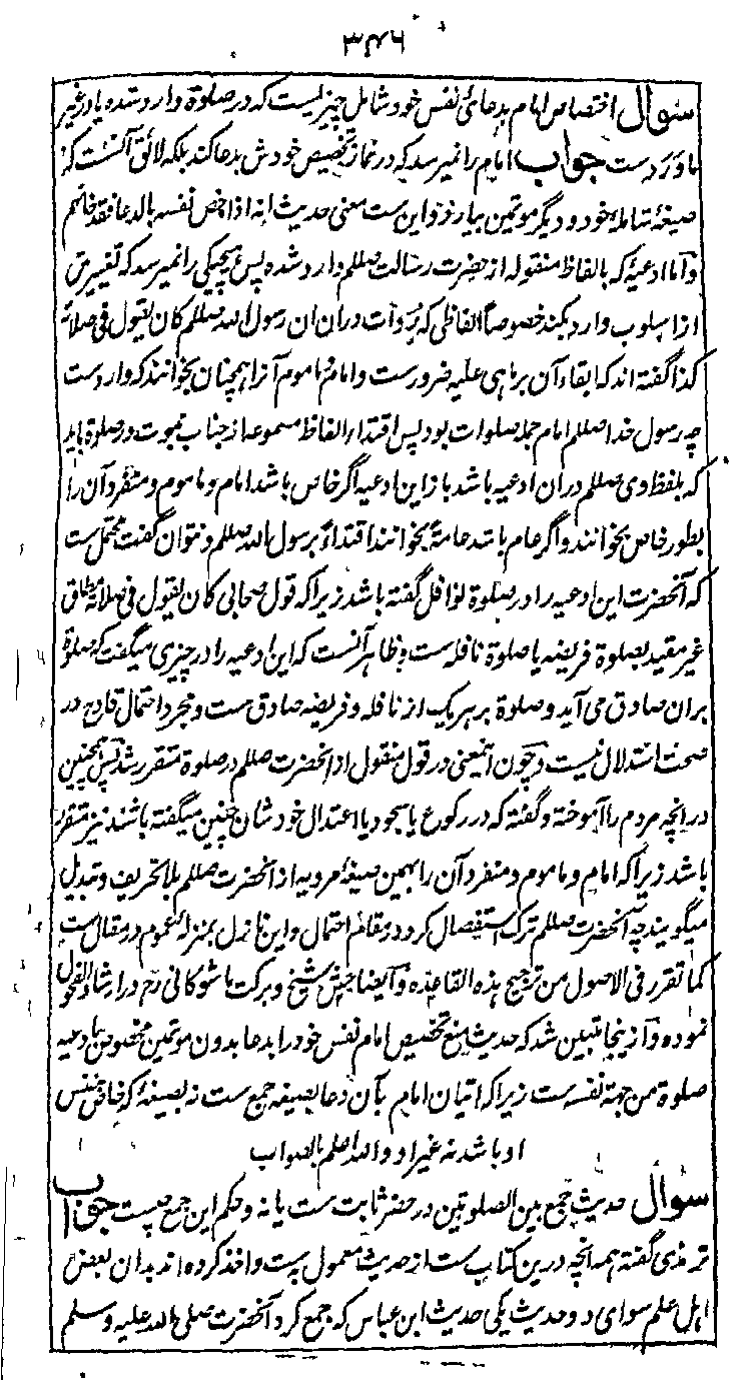 ۳۴۶
سوال اختصاص امام بدعائ نفس خود شامل چیزیست که در صلوة وارد شده یا در غیر
ماورد ست جواب امام را نمیرسد که در نماز تخصیص خودش بدعا کند بلکه لائق آنست که
صیغهٔ شامله خود و دیگر موتمین بیارد و این ست معنی حدیث انه اذا خص نفسه بالدعا فقد خانهم
و اما ادعیهٔ که بالفاظ منقوله از حضرت رسالت صللم وارد شده پس هیچیکی را نمیرسد که تغییرش
از اسلوب وارد بکند خصوصاً الفاظی که رُوات دران ان رسول الله صللم کان یقول فی صلاته
کذا گفته اند که ابقاء آن بر ما هی علیه ضرورست و امام و ماموم آنرا همچنان بخوانند که وارد ست
چه رسول خدا صللم امام جمله صلوات بود پس اقتدا بالفاظ مسموعه از جناب نبوت در صلوة باید
که بلفظ وی صللم دران ادعیه باشد باز این ادعیه اگر خاص باشد امام و ماموم و منفرد آن را
بطور خاص بخوانند و اگر عام باشد عامةً بخوانند اقتداءً برسول الله صللم و نتوان گفت محتمل ست
که آنحضرت این ادعیه را در صلوة نوافل گفته باشد زیرا که قول صحابی کان یقول فی صلاته مطلق
غیر مقید بصلوة فریضه یا صلوة نافله ست و ظاهر آنست که این ادعیه را در چیزی میگفت که صلوة
بران صادق می آید و صلوة بر هر یک از نافله و فریضه صادق ست و مجرد احتمال قادح در
صحت استدلال نیست و چون اینمعنی در قول منقول از آنحضرت صللم در صلوة متقرر شد پس همچنین
در آنچه مردم را آموخته و گفته که در رکوع یا سجود یا اعتدال خودشان چنین میگفته باشند نیز متقرر
باشد زیرا که امام و ماموم و منفرد آن را بهمین صیغهٔ مرویه از آنحضرت صللم بلا تحریف و تبدیل
میگویند چه آنحضرت صللم ترک استفصال کرد در مقام احتمال و این نازل بمنزلهٔ عموم در مقال ست
کما تقرر فی الاصول من ترجیح هذه القاعده و ایضا شیخ و برکت ما شوکانی رح در ارشاد الفحول
نموده و از ینجا متبین شد که حدیث منع تخصیص امام نفس خود را بدعا بدون موتمین مخصوص بادعیه
صلوة من جهة نفسه ست زیرا که اتیان امام بآن دعا بصیغه جمع ست نه بصیغهٔ که خاص بنفس
او باشد نه غیر او و الله اعلم بالصواب
سوال حدیث جمع بین الصلوتین در حضر ثابت ست یا نه و حکم این جمع چیست جواب
ترمذی گفته همه آنچه درین کتاب ست از حدیث معمول به ست و اخذ کرده اند بدان بعض
اهل علم سوای دو حدیث یکی حدیث ابن عباس که جمع کرد آنحضرت صلی الله علیه وسلم